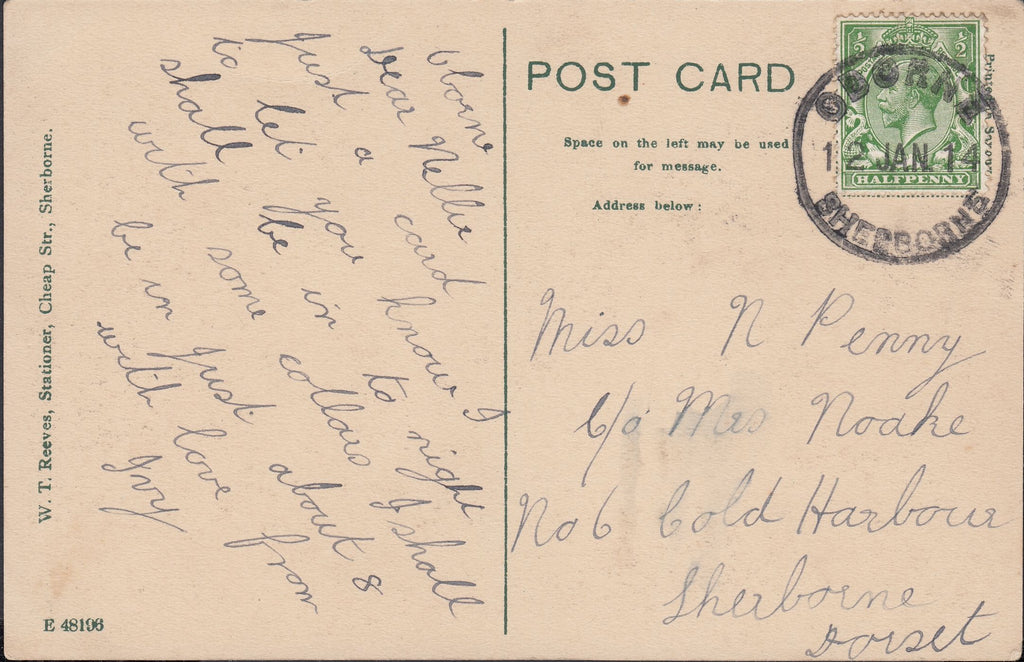 W. T. Reeves, Stationer, Cheap Str., Sherborne.
E 48196
Oborne
Dear Nellie
Just a card
to let you know I
shall be in to night
with some collars I shall
be in just about 8
with love from
Ivy
POST CARD
Space on the left may be used
for message.
Address below:
Printed in Saxony
½ ½
HALFPENNY
OBORNE
12 JAN 14
SHERBORNE
Miss N Penny
C/o Mrs Noake
No 6 Cold Harbour
Sherborne
Dorset